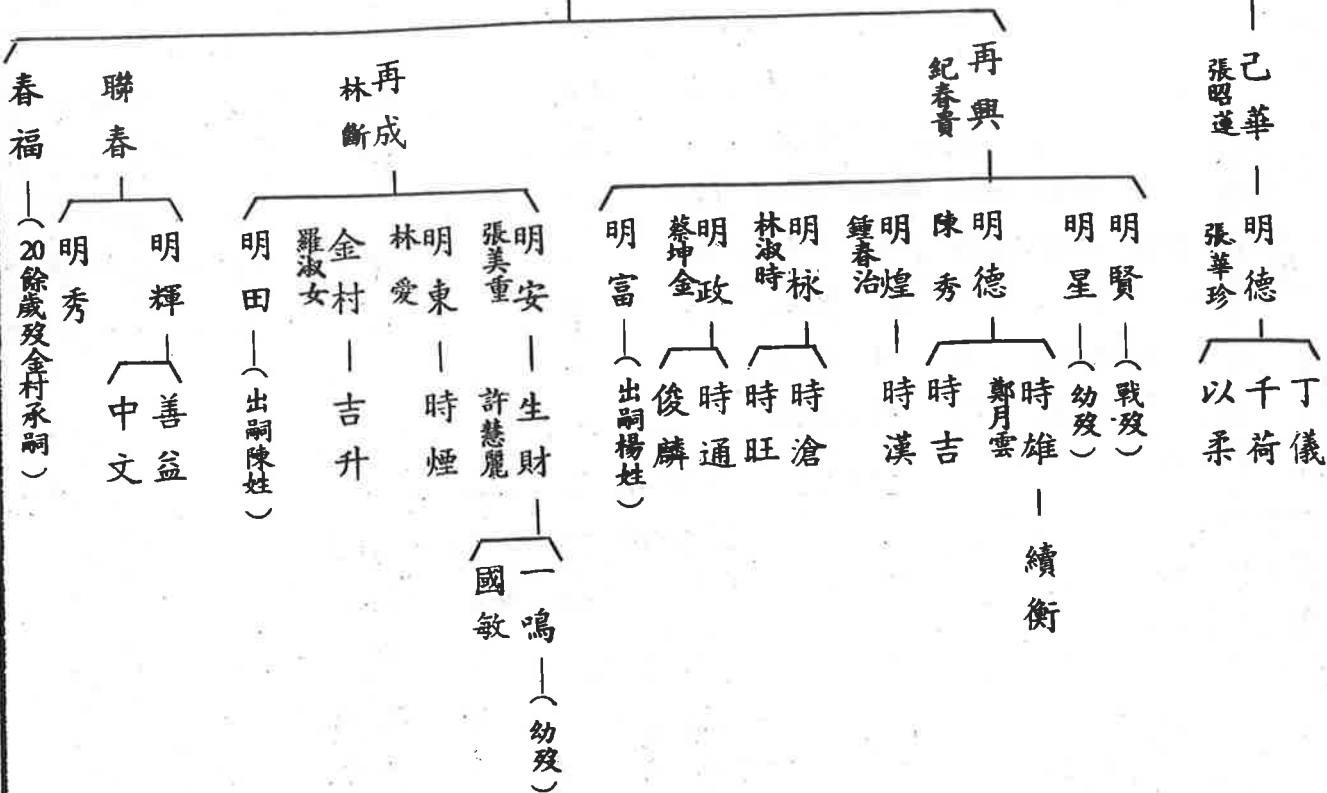 己華
張昭蓮
明德
張華珍
丁儀
千荷
以柔
再興
紀春貴
明賢
（戰歿）
明星
（幼歿）
明德
陳秀
時雄
鄭月雲
續衡
時吉
明煌
鍾春治
時漢
明栐
林淑時
時滄
時旺
明政
蔡坤金
時通
俊麟
明富
（出嗣楊姓）
再成
林斷
明安
張美重
生財
許慧麗
一鳴
（幼歿）
國敏
明東
林愛
時煙
金村
羅淑女
吉升
明田
（出嗣陳姓）
聯春
明輝
善益
中文
明秀
春福
（20餘歲歿金村承嗣）